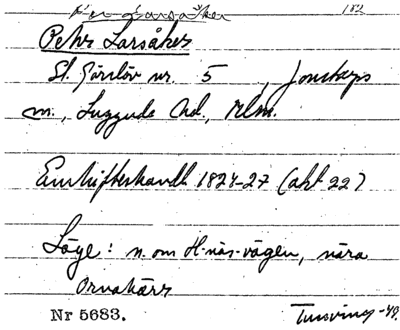 Pers Larsåker 182
Pehr Larsåker
St. Görslöv nr. 5, Jonstorps
sn., Luggude hd., Mlm.
Enskifteshandl. 1824-27 (akt 22)
Läge: n. om H-näs-vägen, nära
Ornakärr
Nr 5683. -40.